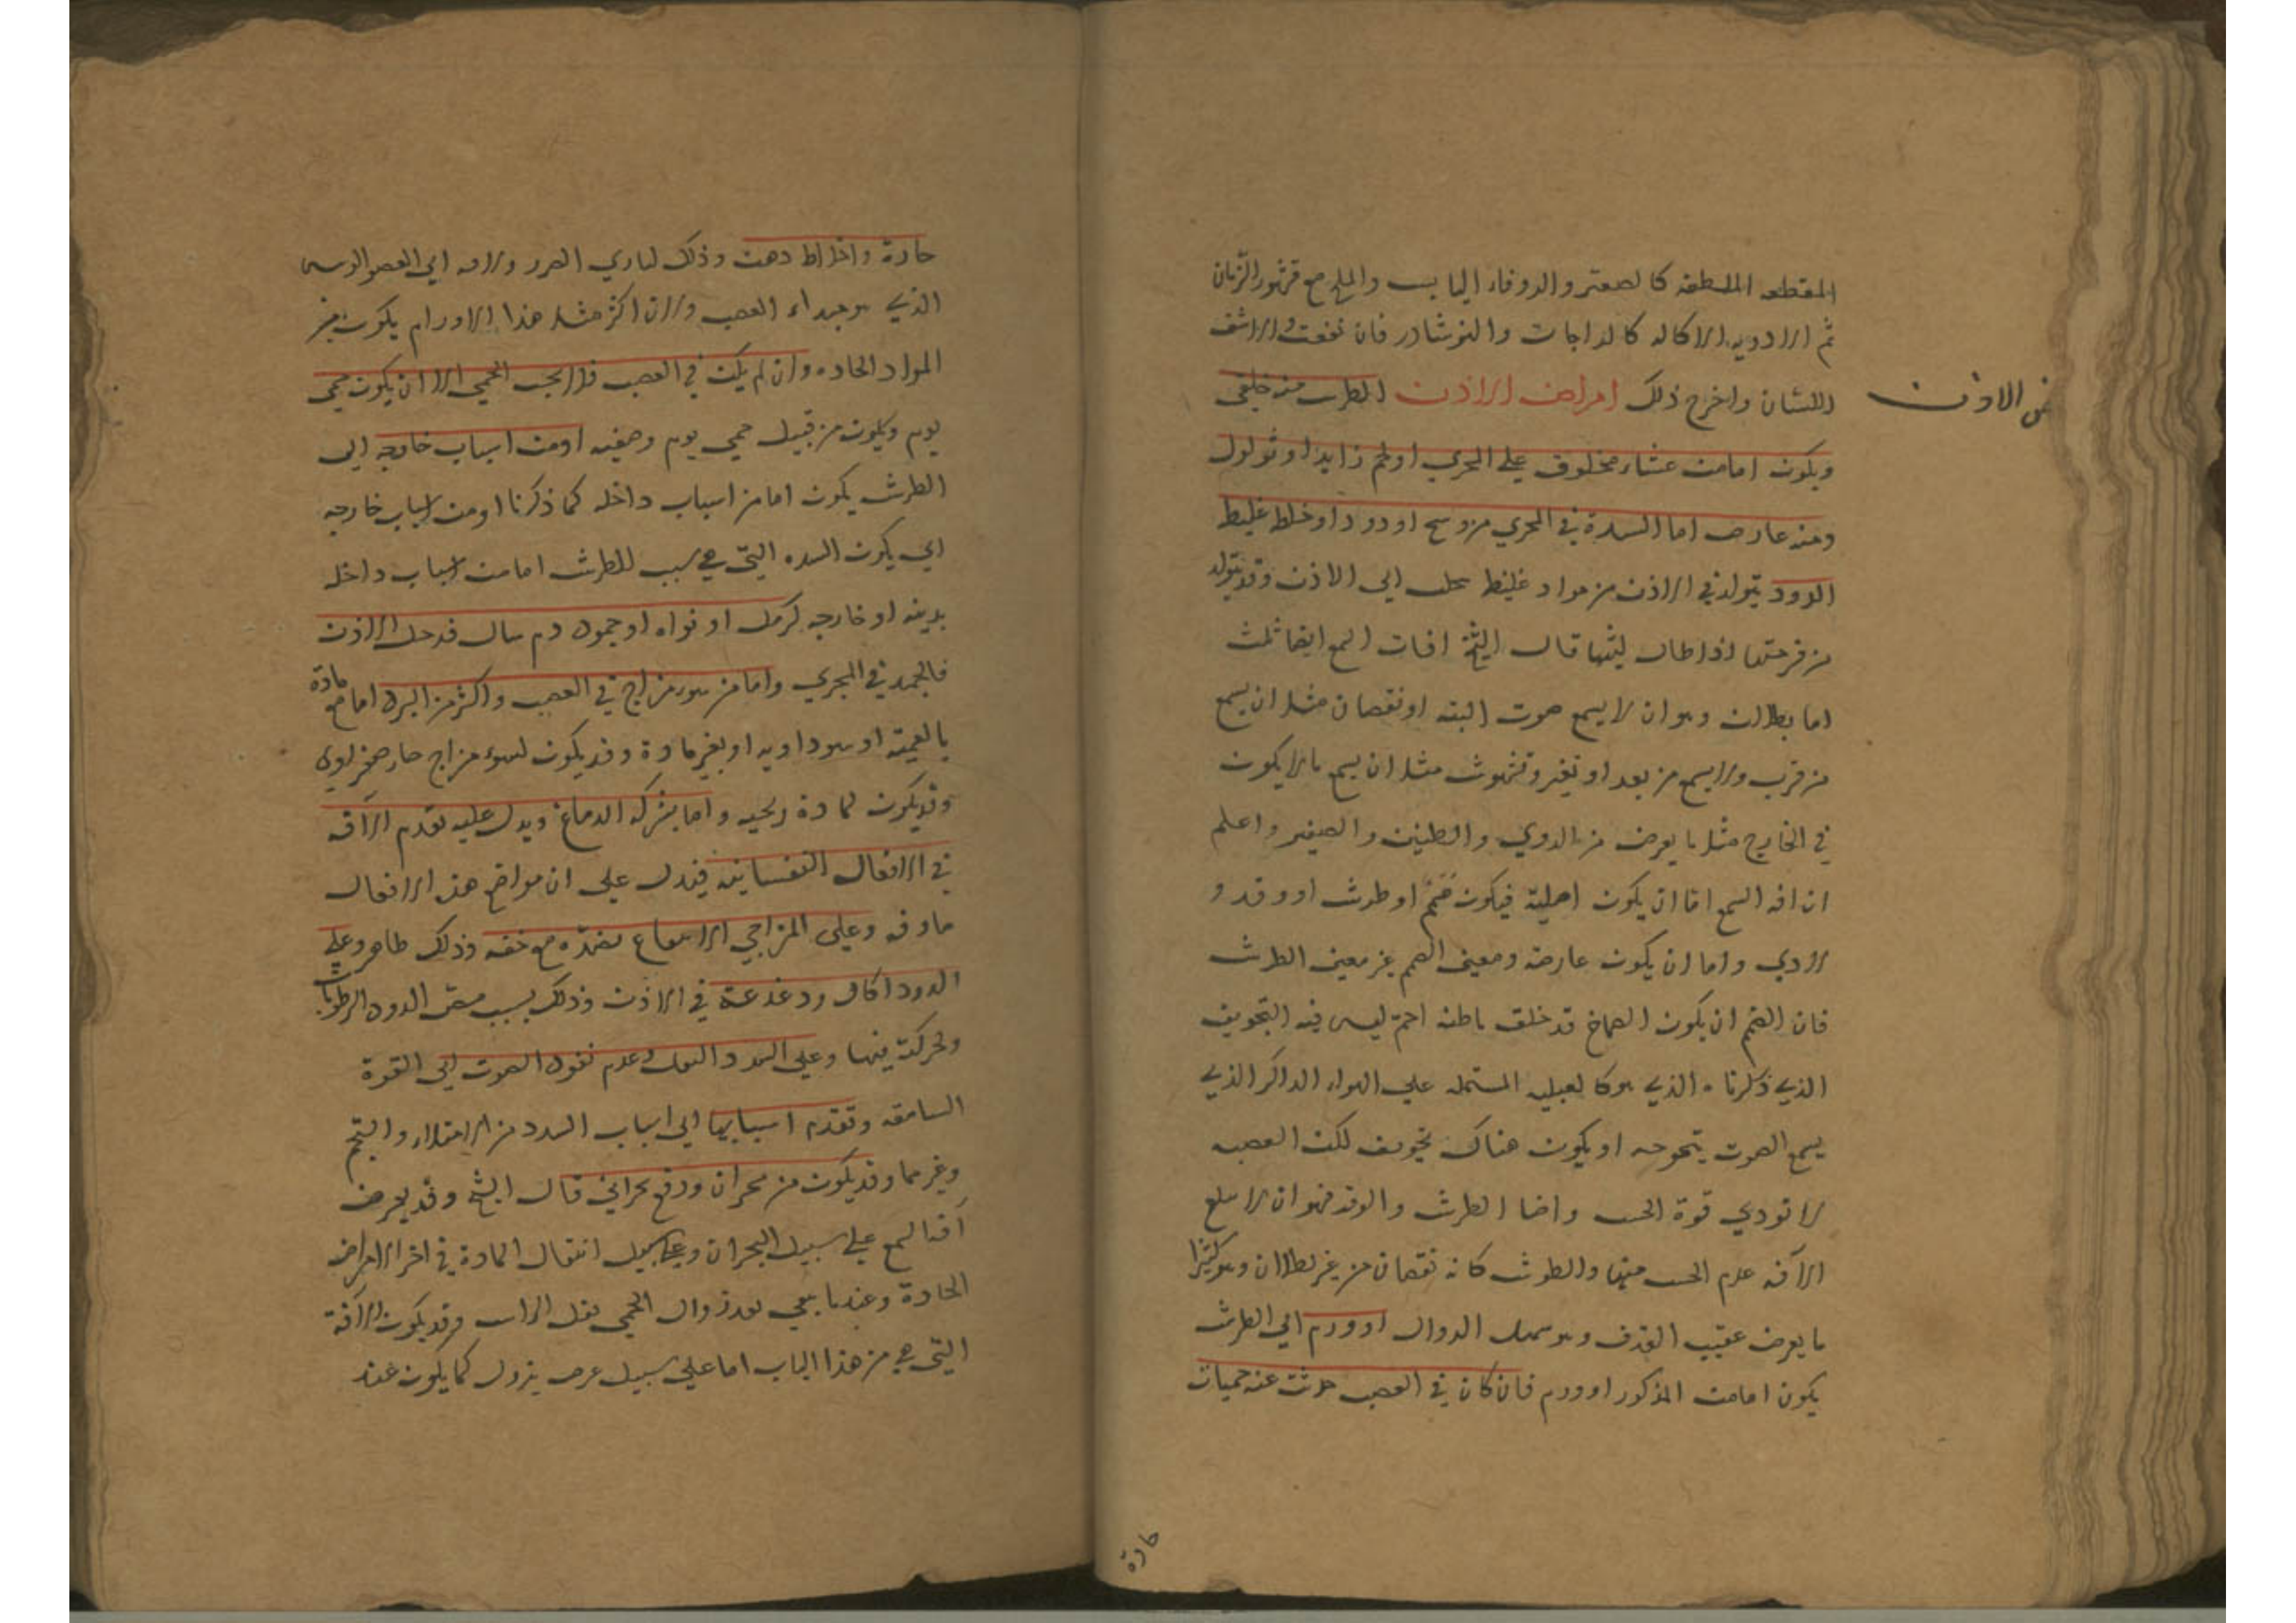 المقطعه الملطفه كالصعتر والزوفاء اليابس والملح مع قشور الرمان
ثم الادويه الاكاله كالزاجات والنوشادر فان نفعت والا شق
اللسان واخرج ذلك امراض الاذن الطرش منه خلقي
ض الاذن
ويكون اما من غشاء مخلوق علي المجري او لحم زايد او ثولول
ومنه عارض اما السدة في المجري من وسخ او دود او خلط غليظ
الدود يتولد في الاذن من مواد غليظ الي الاذن وقد يتولد
من قرحتها اذا طال لبثها قال الشيخ افات السمع ايضا ثلث
اما بطلان وهو ان لا يسمع صوت البته او نقصان مثل ان يسمع
من قرب ولا يسمع من بعد او تغير وتشوش مثل ان يسمع ما لا يكون
في الخارج مثل ما يعرض من الدوي والطنين والصفير واعلم
ان افه السمع اما ان يكون اصلية فيكون صمم او طرش او وقر و
لادي واما ان يكون عارضه ومعني الصمم غير معني الطرش
فان الصمم ان يكون الصماخ قد خلق باطنه اصم ليس فيه التجويف
الذي ذكرناه الذي هو كا المشتمله علي الهواء الراكد الذي
يسمع الصوت بتموجه او يكون هناك تجويف لكن العصبه
لا تودي قوة الحس واما الطرش والوقر فهو ان لا تبلغ
الآفه عدم الحس منها والطرش كانه نقصان من غير بطلان وهو كثيرا
ما يعرض عقيب القذف وهو سهل الزوال او ورم اي الطرش
يكون اما من المذكور او ورم فان كان في العصب حدثت عنه حميات
حادة
حادة واختلاط ذهن وذلك لتادي الضرر ولا فه الي العضو الرييس
الذي هو مبداء العصب ولان اكثر مثل هذا الاورام يكون من
المواد الحاده وان لم يكن في العصب فلا يجب الحمي الا ان يكون حمي
يوم ويكون من قبيل حمي يوم وصفيه او من اسباب خارجه اي
الطرش يكون اما من اسباب داخله كما ذكرنا او من اسباب خارجه
اي يكون السده التي هي سبب للطرش اما من اسباب داخله
بدينه او خارجه كرمل او نواه او جمود دم سال الاذن
فانجمد في المجري واما من سوء مزاج في العصب واكثر من البرد اما مع مادة
بالغميه او سوداويه او بغير مادة وقد يكون لسوء مزاج حار
وقد يكون لمادة ريحيه واما بشركه الدماغ ويدل عليه تقدم الآفه
في الافعال النفسانيه فيدل علي ان مواضع هذه الافعال
ماوفه وعلي المزاجي الا بضده مع خفه وذلك ظاهر وعلي
الدود اكال ودغدغة في الاذن وذلك بسبب مص الدود الرطوبات
وحركته فيها وعلي السدد الثقل وعدم نفوذ الصوت الي القوة
السامعه وتقدم اسبابها اي اسباب السدد من الامتلاء والتخم
وغيرهما وقد يكون من بحران ودفع بحراني قال الشيخ وقد يعرض
آفة السمع علي سبيل البحران وعلي سبيل انتقال المادة في اخر الامراض
الحادة وعندما يبقي بعد زوال الحمي ثقل الراس وقد يكون الآفة
التي هي من هذا الباب اما علي سبيل عرض يزول كما يكون عند